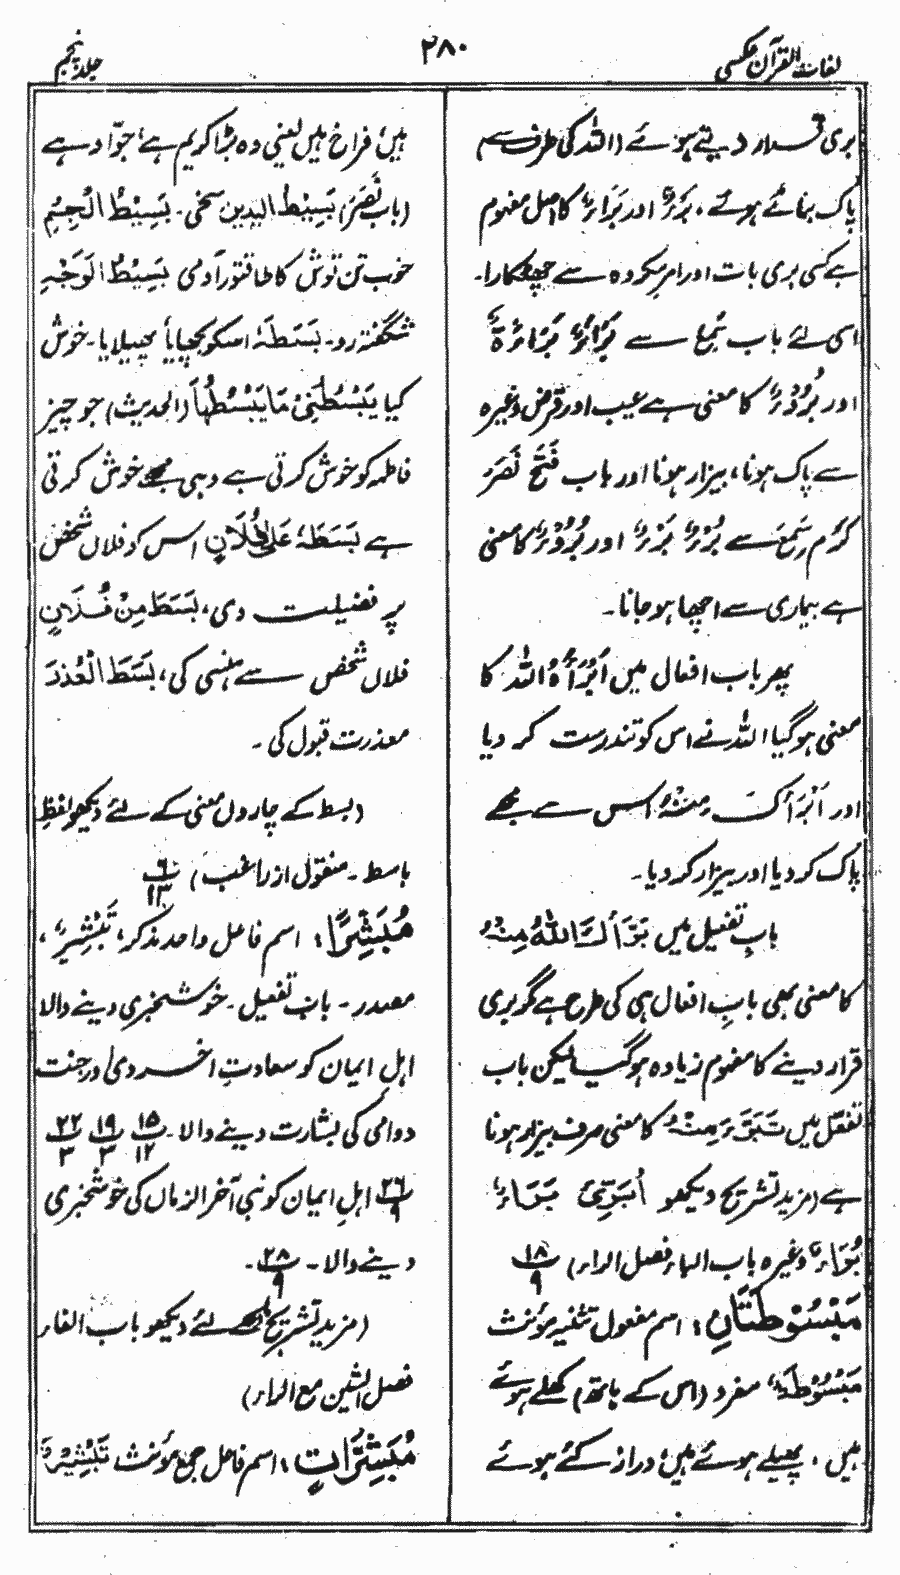 لغات القرآن عکسی
۲۸۰
جلد پنجم
بری قرار دیتے ہوئے (اللہ کی طرف سے)
پاک بنائے ہوئے، بَرْءٌ اور بَرَاءٌ کا اصل مفہوم
ہے کسی بری بات اور امر مکروہ سے چھٹکارا۔
اسی لئے باب سَمِعَ سے بَرَاءٌ بَرَاءَۃٌ
اور بُرُوْءٌ کا معنی ہے عیب اور قرض وغیرہ
سے پاک ہونا، بیزار ہونا اور باب فَتَحَ نَصَرَ
کَرُمَ سَمِعَ سے بُرْءٌ بَرْءٌ اور بُرُوْءٌ کا معنی
ہے بیماری سے اچھا ہو جانا۔
پھر باب افعال میں اَبْرَأَہُ اللہ کا
معنی ہو گیا اللہ نے اس کو تندرست کر دیا
اور اَبْرَأَکَ مِنْہُ اس سے مجھے
پاک کر دیا اور بیزار کر دیا۔
بابِ تفعیل میں بَرَّأَکَ اللہُ مِنْہُ
کا معنی بھی بابِ افعال ہی کی طرح ہے مگر بری
قرار دینے کا مفہوم زیادہ ہو گیا لیکن باب
تفعّل میں تَبَرَّءَ مِنْہُ کا معنی صرف بیزار ہونا
ہے (مزید تشریح دیکھو اُبَرِّئُ بَرَاءٌ
بُرَءَاءُ وغیرہ باب الباء فصل الراء) ۱۸/۹
مَبْسُوْطَتَانِ: اسم مفعول تثنیہ مؤنث
مَبْسُوْطَۃٌ مفرد (اس کے ہاتھ) کھلے ہوئے
ہیں، پھیلے ہوئے ہیں، دراز کئے ہوئے
ہیں، فراخ ہیں یعنی وہ بڑا کریم ہے، جوّاد ہے
(باب نَصَرَ) بَسِیْطُ الیدین سخی۔ بَسِیْطُ الْجِسْمِ
خوب تن و توش کا طاقتور آدمی بَسِیْطُ الْوَجْہِ
شگفتہ رو۔ بَسَطَہٗ اسکو بچھایا پھیلایا۔ خوش
کیا یَبْسُطُنِیْ مَا یَبْسُطُہَا (الحدیث) جو چیز
فاطمہ کو خوش کرتی ہے وہی مجھے خوش کرتی
ہے بَسَطَہٗ عَلٰی فُلَانٍ اس کو فلاں شخص
پر فضیلت دی، بَسَطَ مِنْ فُلَانٍ
فلاں شخص سے ہنسی کی، بَسَطَ الْعُذْرَ
معذرت قبول کی۔
(بسط کے چاروں معنی کے لئے دیکھو لفظ
باسط۔ منقول از راغب) ۶/۱۳
مُبَشِّرًا: اسم فاعل واحد مذکر، تَبْشِیْرٌ،
مصدر۔ باب تفعیل۔ خوشخبری دینے والا
اہلِ ایمان کو سعادتِ اخروی اور جنت
دوامی کی بشارت دینے والا۔ ۱۵/۱۲ ۱۹/۳ ۲۲/۳
۲۶/۹ اہلِ ایمان کو نبی آخر الزماں کی خوشخبری
دینے والا۔ ۲۸/۹۔
(مزید تشریح کے لئے دیکھو باب الفاء
فصل الشین مع الراء)
مُبَشِّرَاتٍ: اسم فاعل جمع مؤنث تَبْشِیْرٌ